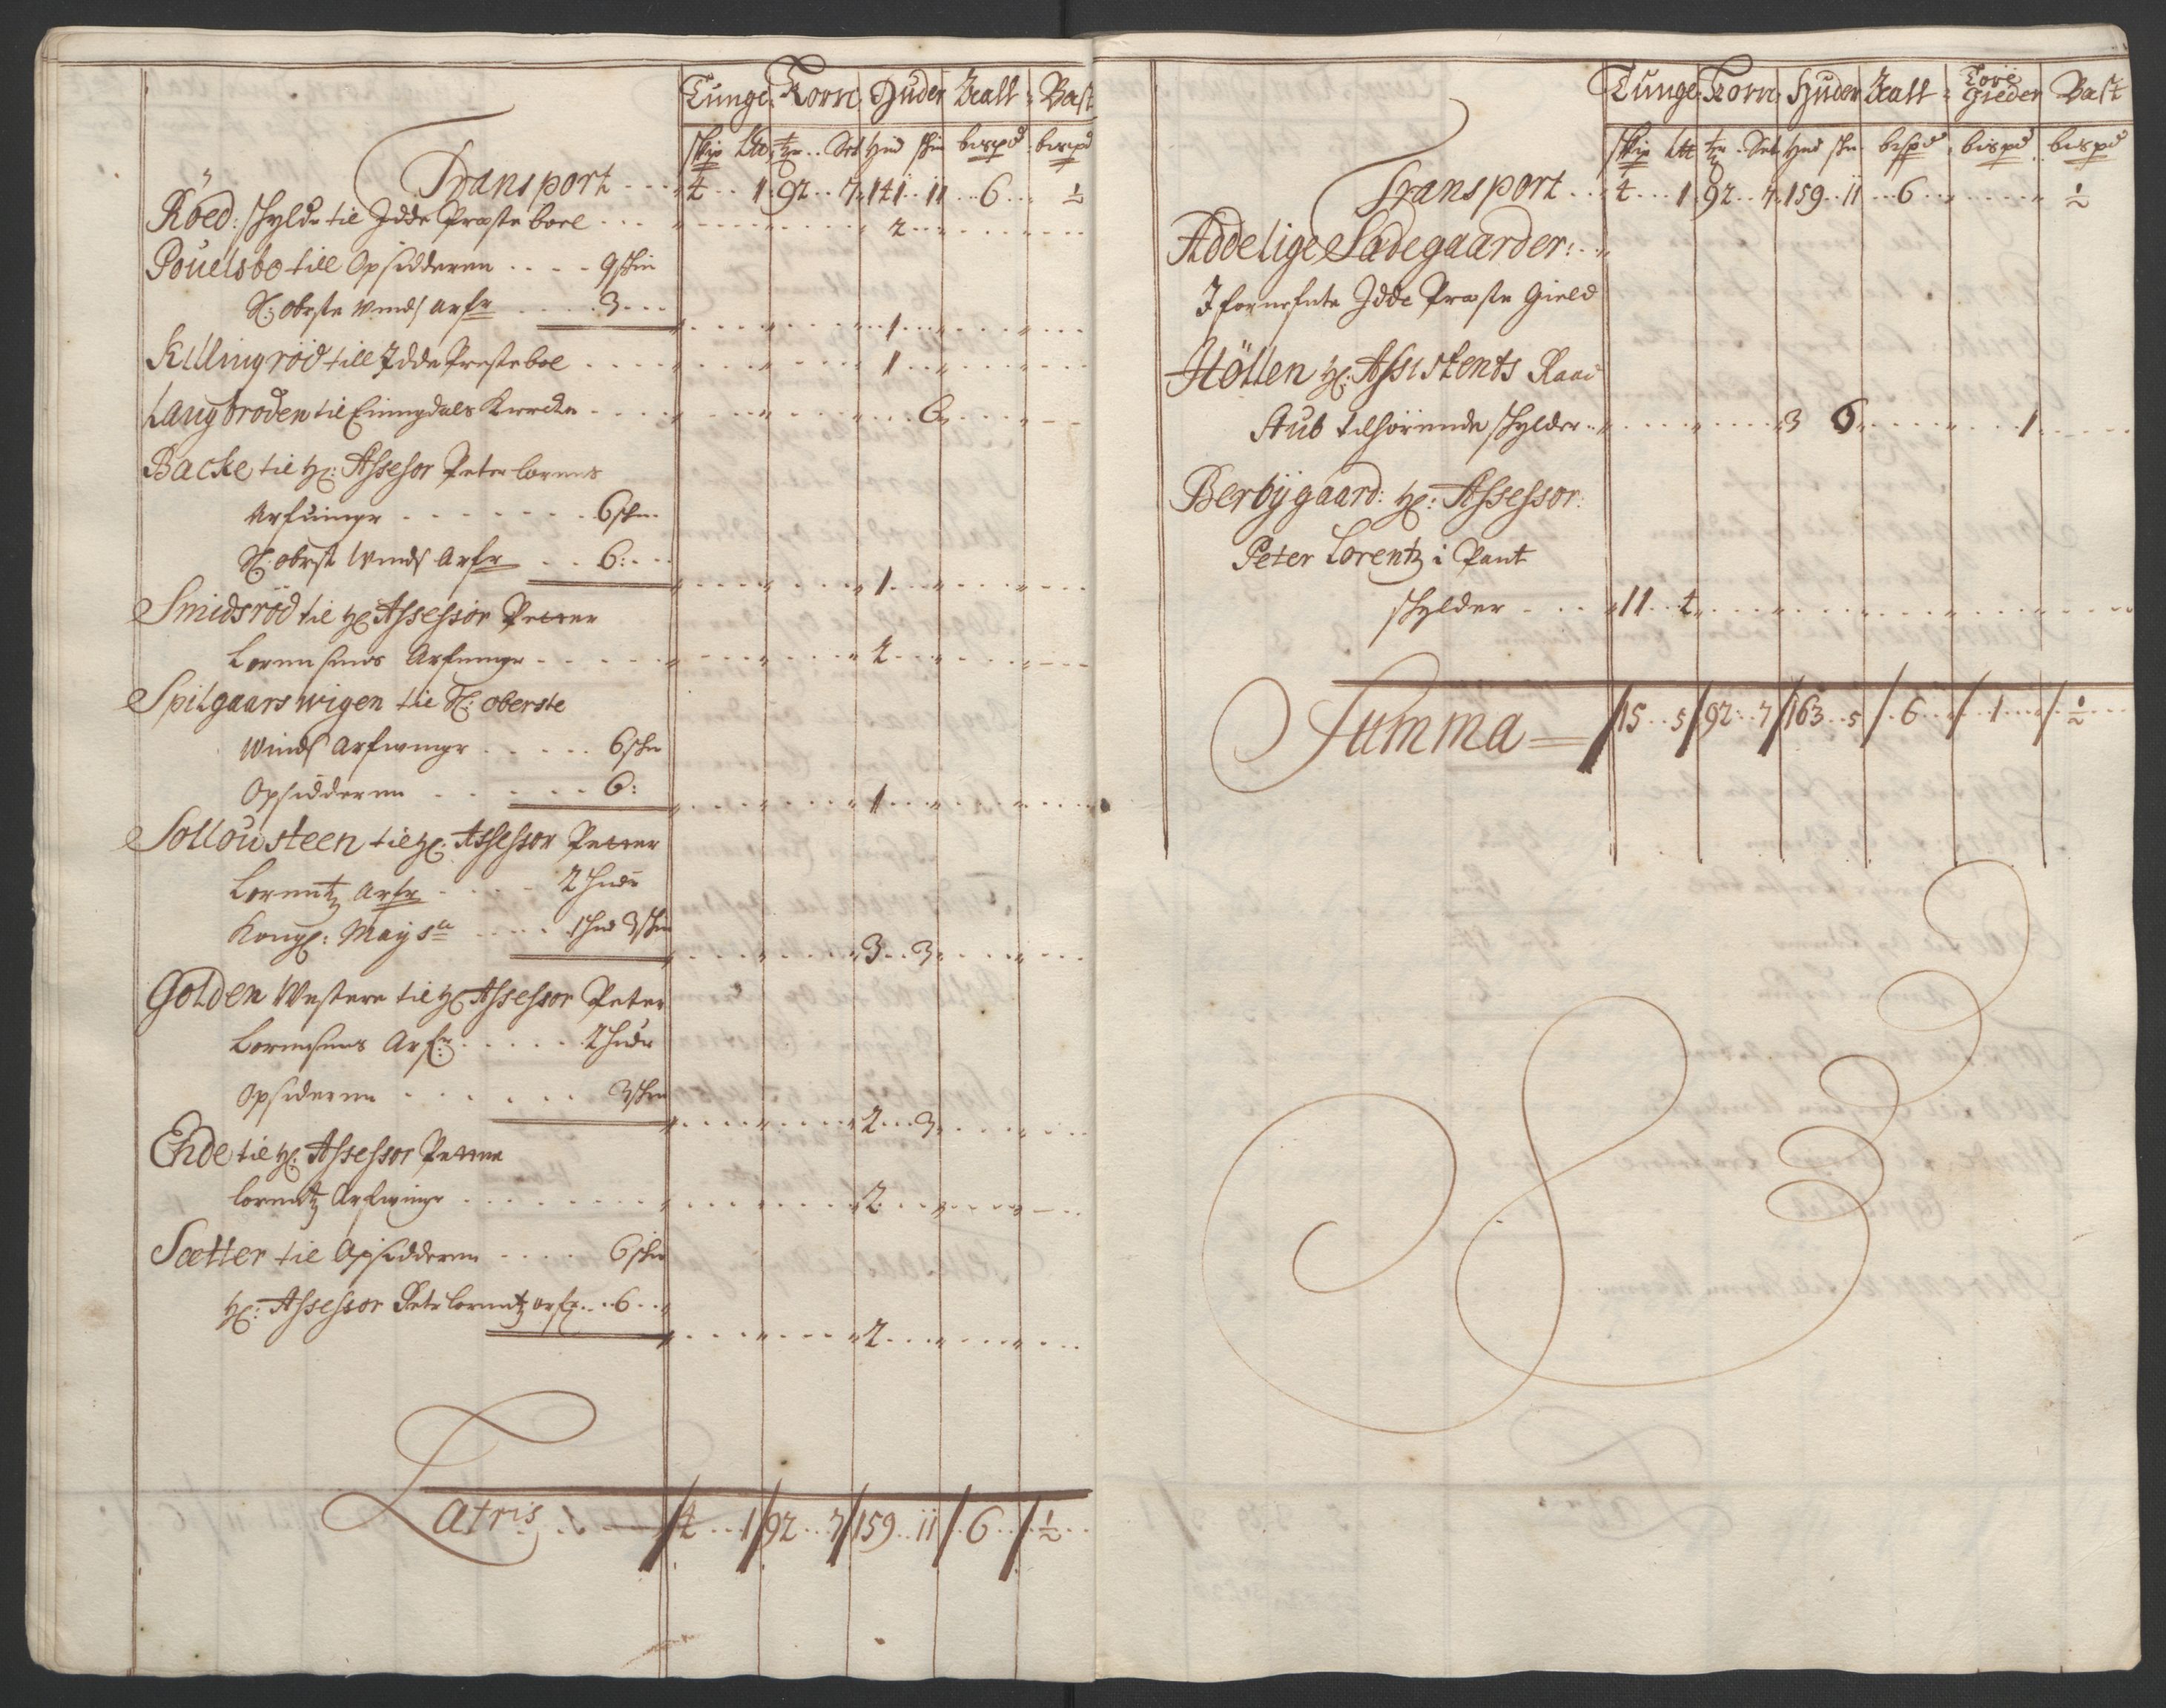 Tunge Korn Huder Tall Bast
skip Ltt tr Set Hud skin bispd bispd
Transport 4 1 92 7 141 11 6 ½
Röed: skylde til Idde Præste boel 2
Pouelsbo till Opsidderen 9 skin
Sl: obrste Winds arfr 3
1
Killingröd till Idde Præsteboel 1
Langbroden til Eningdals Kircke 6
Backe til Hr: Assessor Peter Lorens
Arfuinger 6 skn
Sl: obrst Winds Arfr 6
1
Smidsröd til Hr Assessor Petter
Lorensens Arfuinger 2
Spilgaarswigen til Sl: oberste
Winds Arfwinger 6 skn
Opsidderen 6:
1
Sollousteen til Hr: Assessor Petter
Lorentz Arfr 2 Huder
Kongl: Mayst 1 Hud 3 skin
3 3
Golden Westere til Hr Assessor Peter
Lorensens Arfr 2 Hudr
Opsideren 3 skin
2 3
Ende til Hr: Assessor Petter
Lorentz Arfwinger 2
Sætter til Opsidderen 6 skn
Hr: Assessor Peter Lorentz arfr 6
2
Latris 4 1 92 7 159 11 6 ½
Tunge Korn Huder Tall Bast
skip Ltt tr Set Hud skn bispd bispd bispd
Transport 4 1 92 7 159 11 6 ½
Addelige Sædegaarder:
I fornefnte Idde Præste Gield
Hr: Assistents Raad
Stub tilhörende skylder 3 6 1
Berbÿgaard: Hr: Assessor:
Peter Lorentz i Pant
skylder 11 4
Summa 15 5 92 7 163 5 6 1 ½